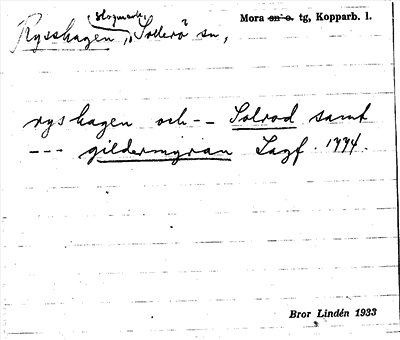 Skogmark,
Rysshagen, Sollerö sn,
Mora sn o. tg, Kopparb. l.
ryshagen och -- Solrod samt
--- gildermyran Lagf. 1774.
Bror Lindén 1933